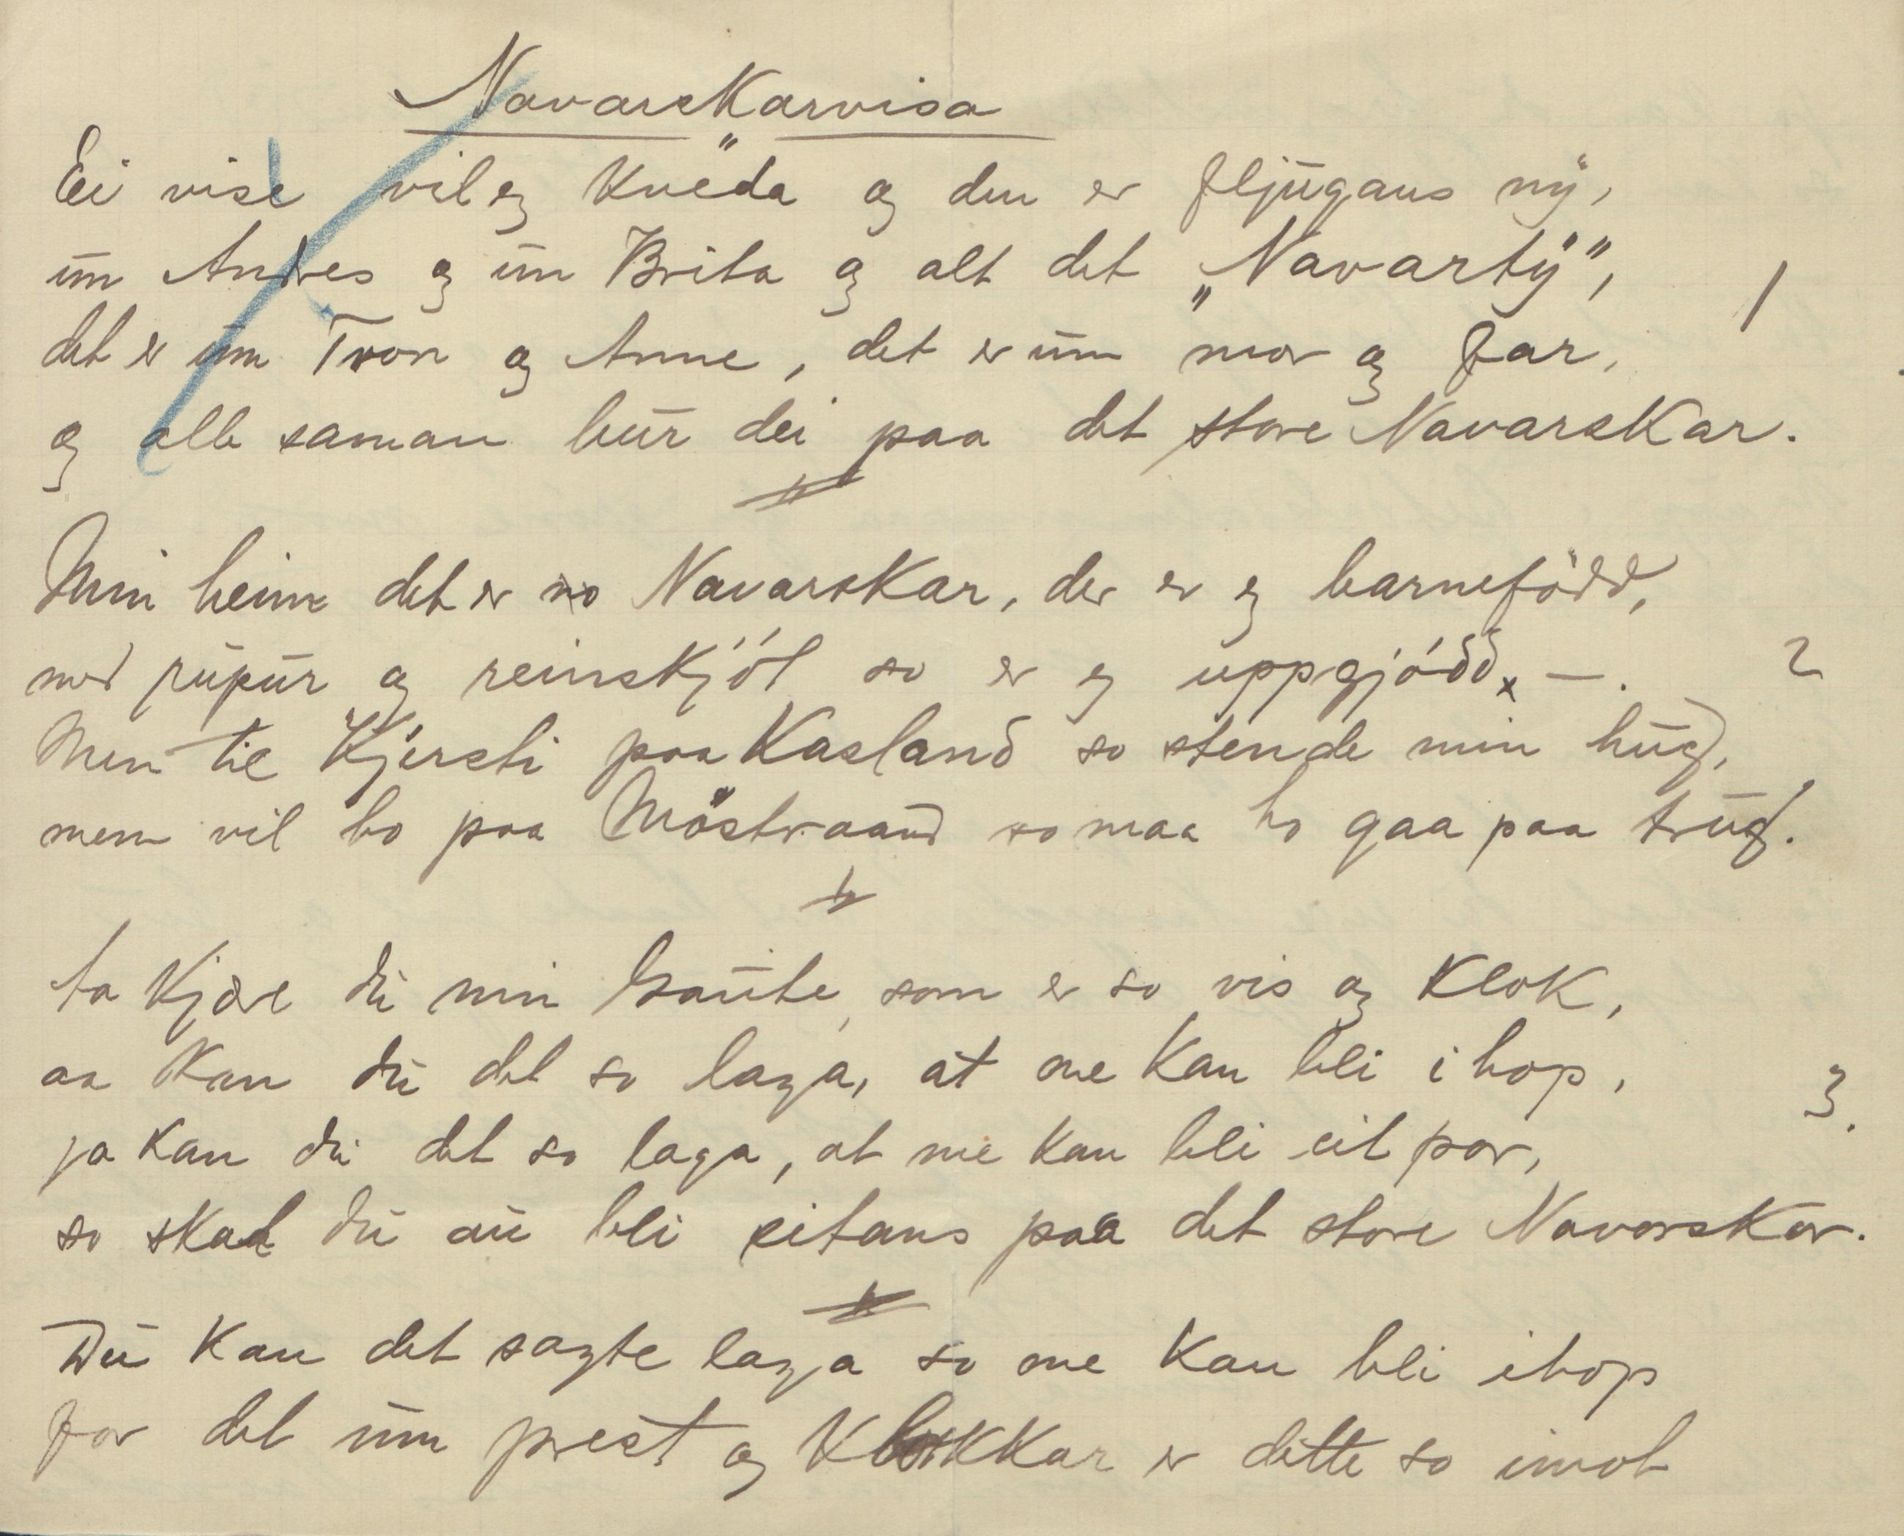 Navarskarvisa
Ei vise vil eg kvëda og den er fljūgans nÿ,
ūm Andres og ūm Brita og alt det „Navartÿ“,
det er ūm Tron og Anne, det er ūm mor og far,
og alle saman būr dei paa det store Navarskar.
1
Min heim det er no Navarskar, der er eg barneföđđ,
med rūpūr og reinskjöt so er eg uppgjóđđ x —.
Men til Kjersti paa Kasland so stende min hūg,
men vil ho paa Möstraand so maa ho gaa paa trūg.
2
Aa kjære dū min Gaūte, som er so vis og klok,
aa kan dū det so laga, at me kan bli ihop,
ja kan dū det so laga, at me kan bli eit par,
so skal dū aū bli eitans paa det store Navarskar.
3.
Dū kan det sagte laga so me kan bli ihop
for det ūm prest og klokkar er dette so imot